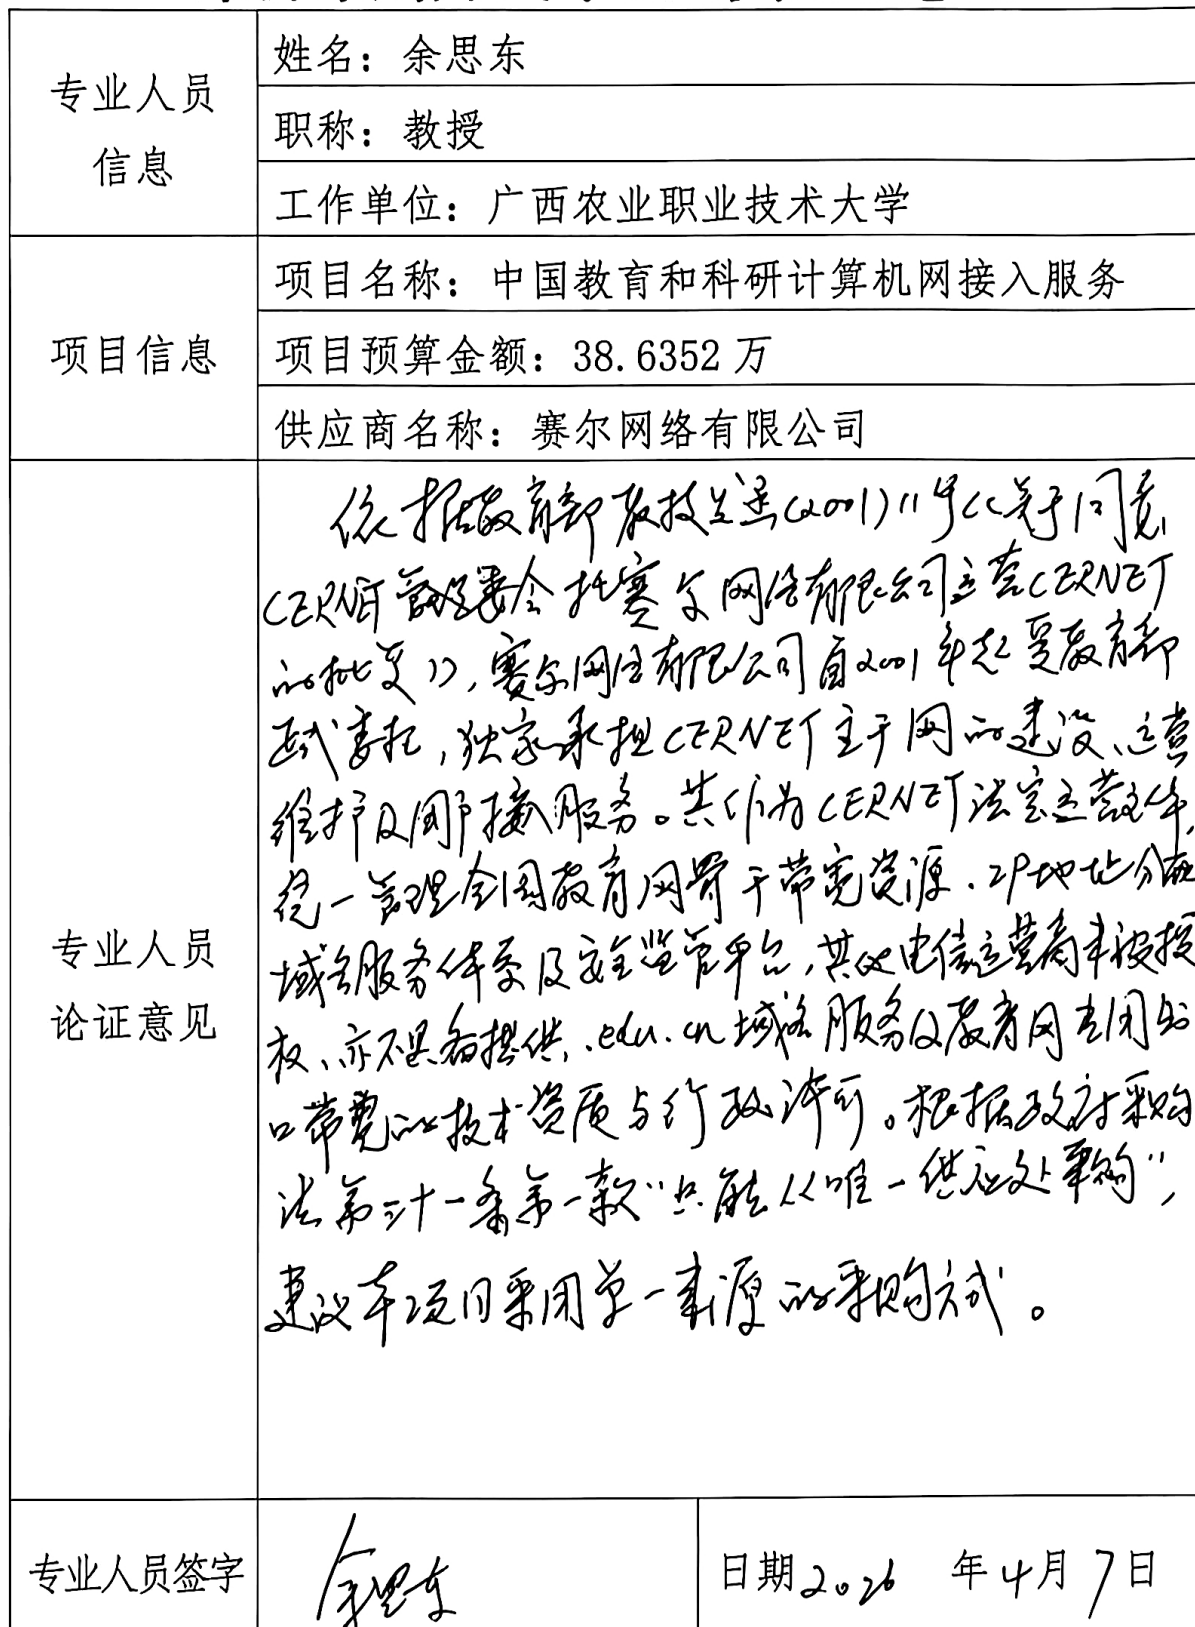 专业人员
信息
姓名：余思东
职称：教授
工作单位：广西农业职业技术大学
项目信息
项目名称：中国教育和科研计算机网接入服务
项目预算金额：38.6352 万
供应商名称：赛尔网络有限公司
专业人员
论证意见
依据教育部教技发函(2001)11号《关于同意
CERNET管理委会托赛尔网络有限公司运营CERNET
的批复》，赛尔网络有限公司自2001年起受教育部
正式委托，独家承担CERNET主干网的建设、运营
维护及用户接入服务。其作为CERNET法定运营主体，
统一管理全国教育网骨干带宽资源、IP地址分配
域名服务体系及安全监管平台，其他电信运营商未被授
权、亦不具备提供.edu.cn域名服务及教育网专用出
口带宽的技术资质与行政许可。根据政府采购
法第三十一条第一款“只能从唯一供应处采购”，
建议本项目采用单一来源的采购方式。
专业人员签字
余思东
日期2026 年4月7日